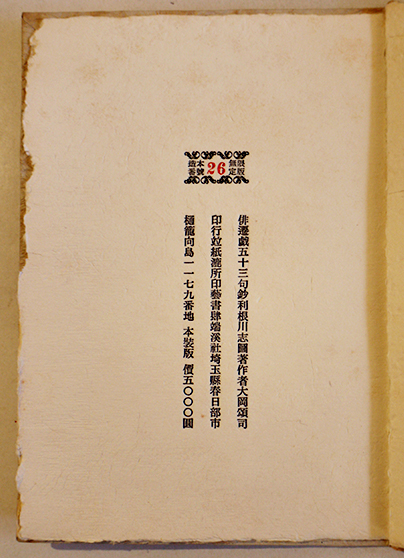 造本
番號
26
定版
俳遷戲五十三句鈔利根川志圖著作者大岡頌司
印行竝紙漉所印藝書肆端溪社埼玉縣春日部市
樋籠向島一一七九番地 本裝版 價五〇〇〇圓